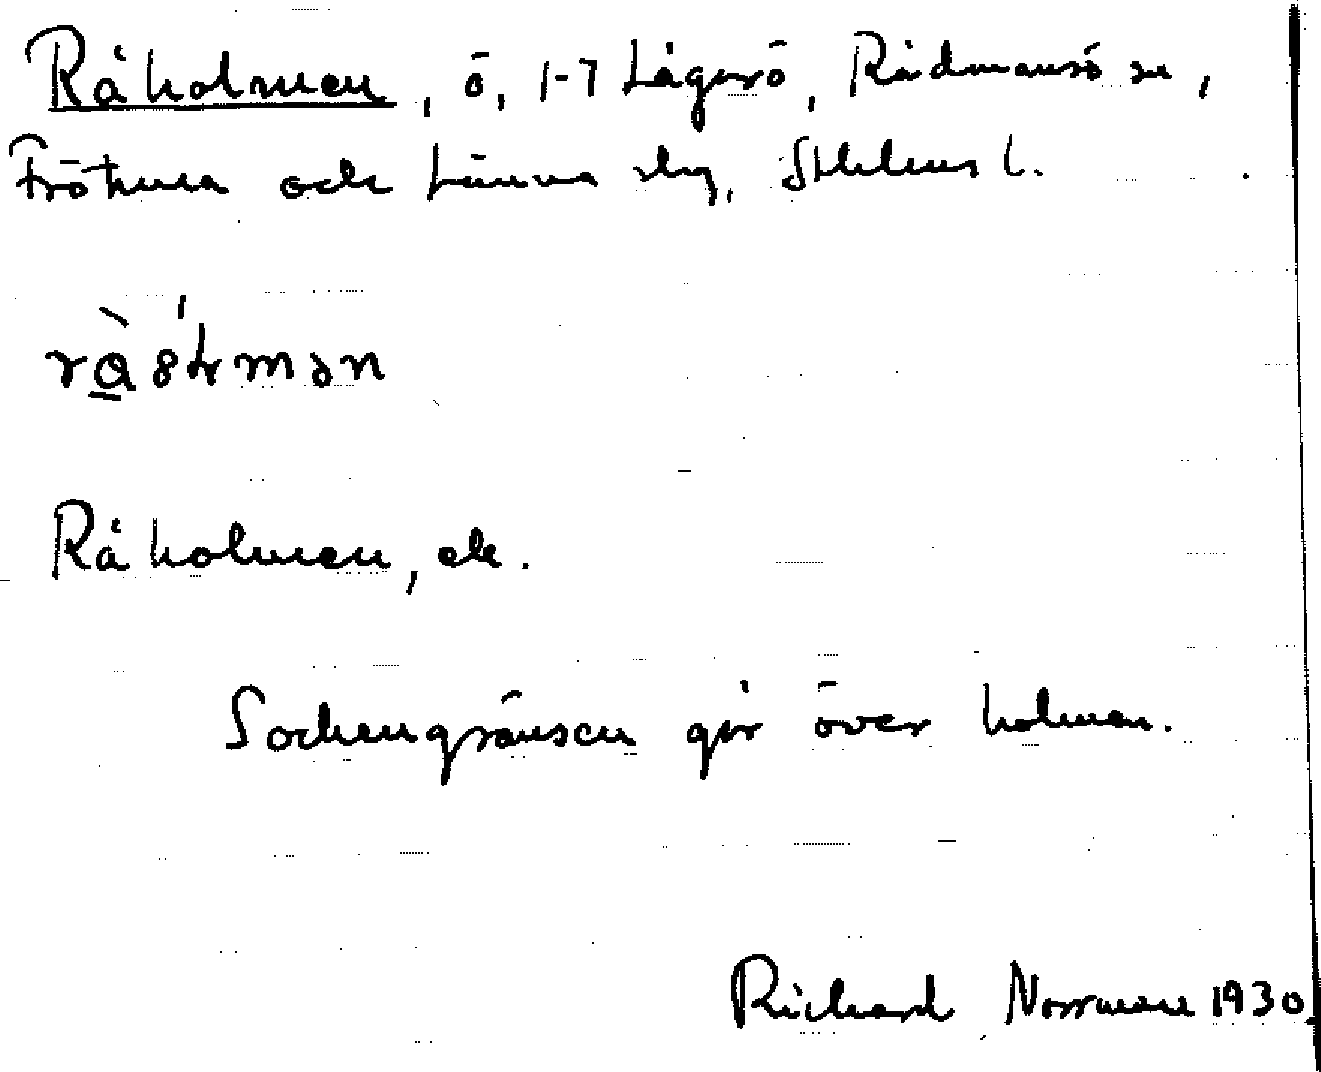 Råholmen, ö, 1-7 Lågarö, Rådmansö sn,
Frötuna och Länna skg, Sthlms l.
Råholmen, ek.
Sockengränsen går över holmen.
Richard Norrman 1930